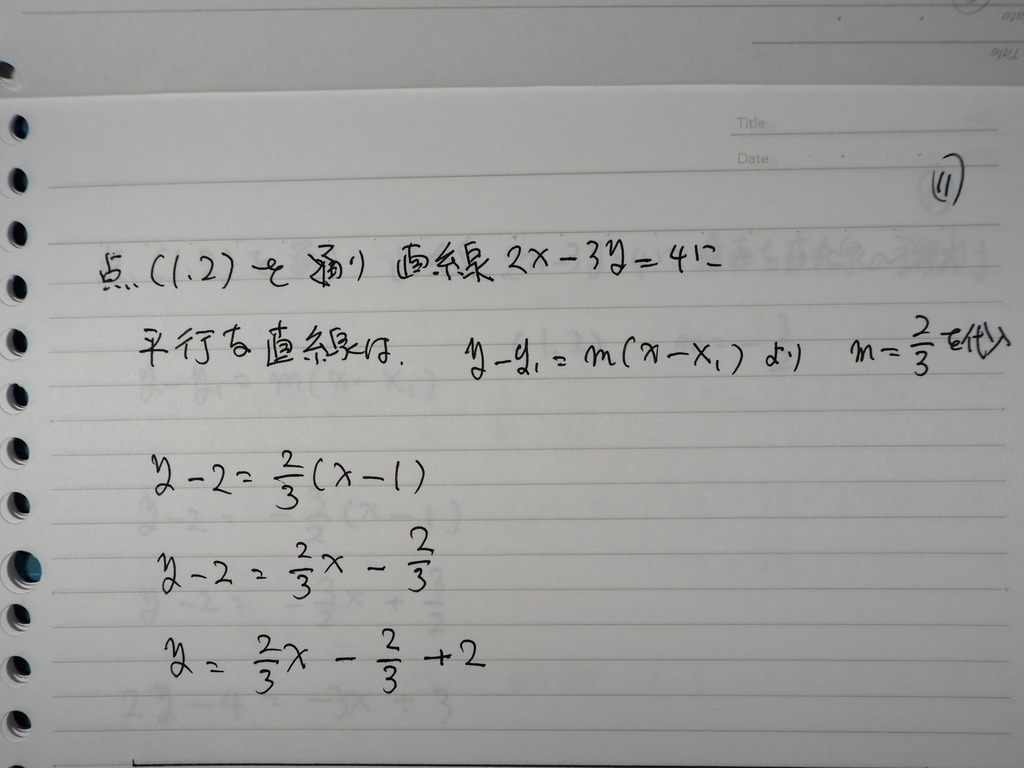 Title
Date
(11)
点 (1.2) を 通り 直線 2x-3y=4に
平行な直線は. y-y₁=m(x-x₁) より m=2/3を代入
y-2=2/3(x-1)
y-2=2/3x-2/3
y=2/3x-2/3+2